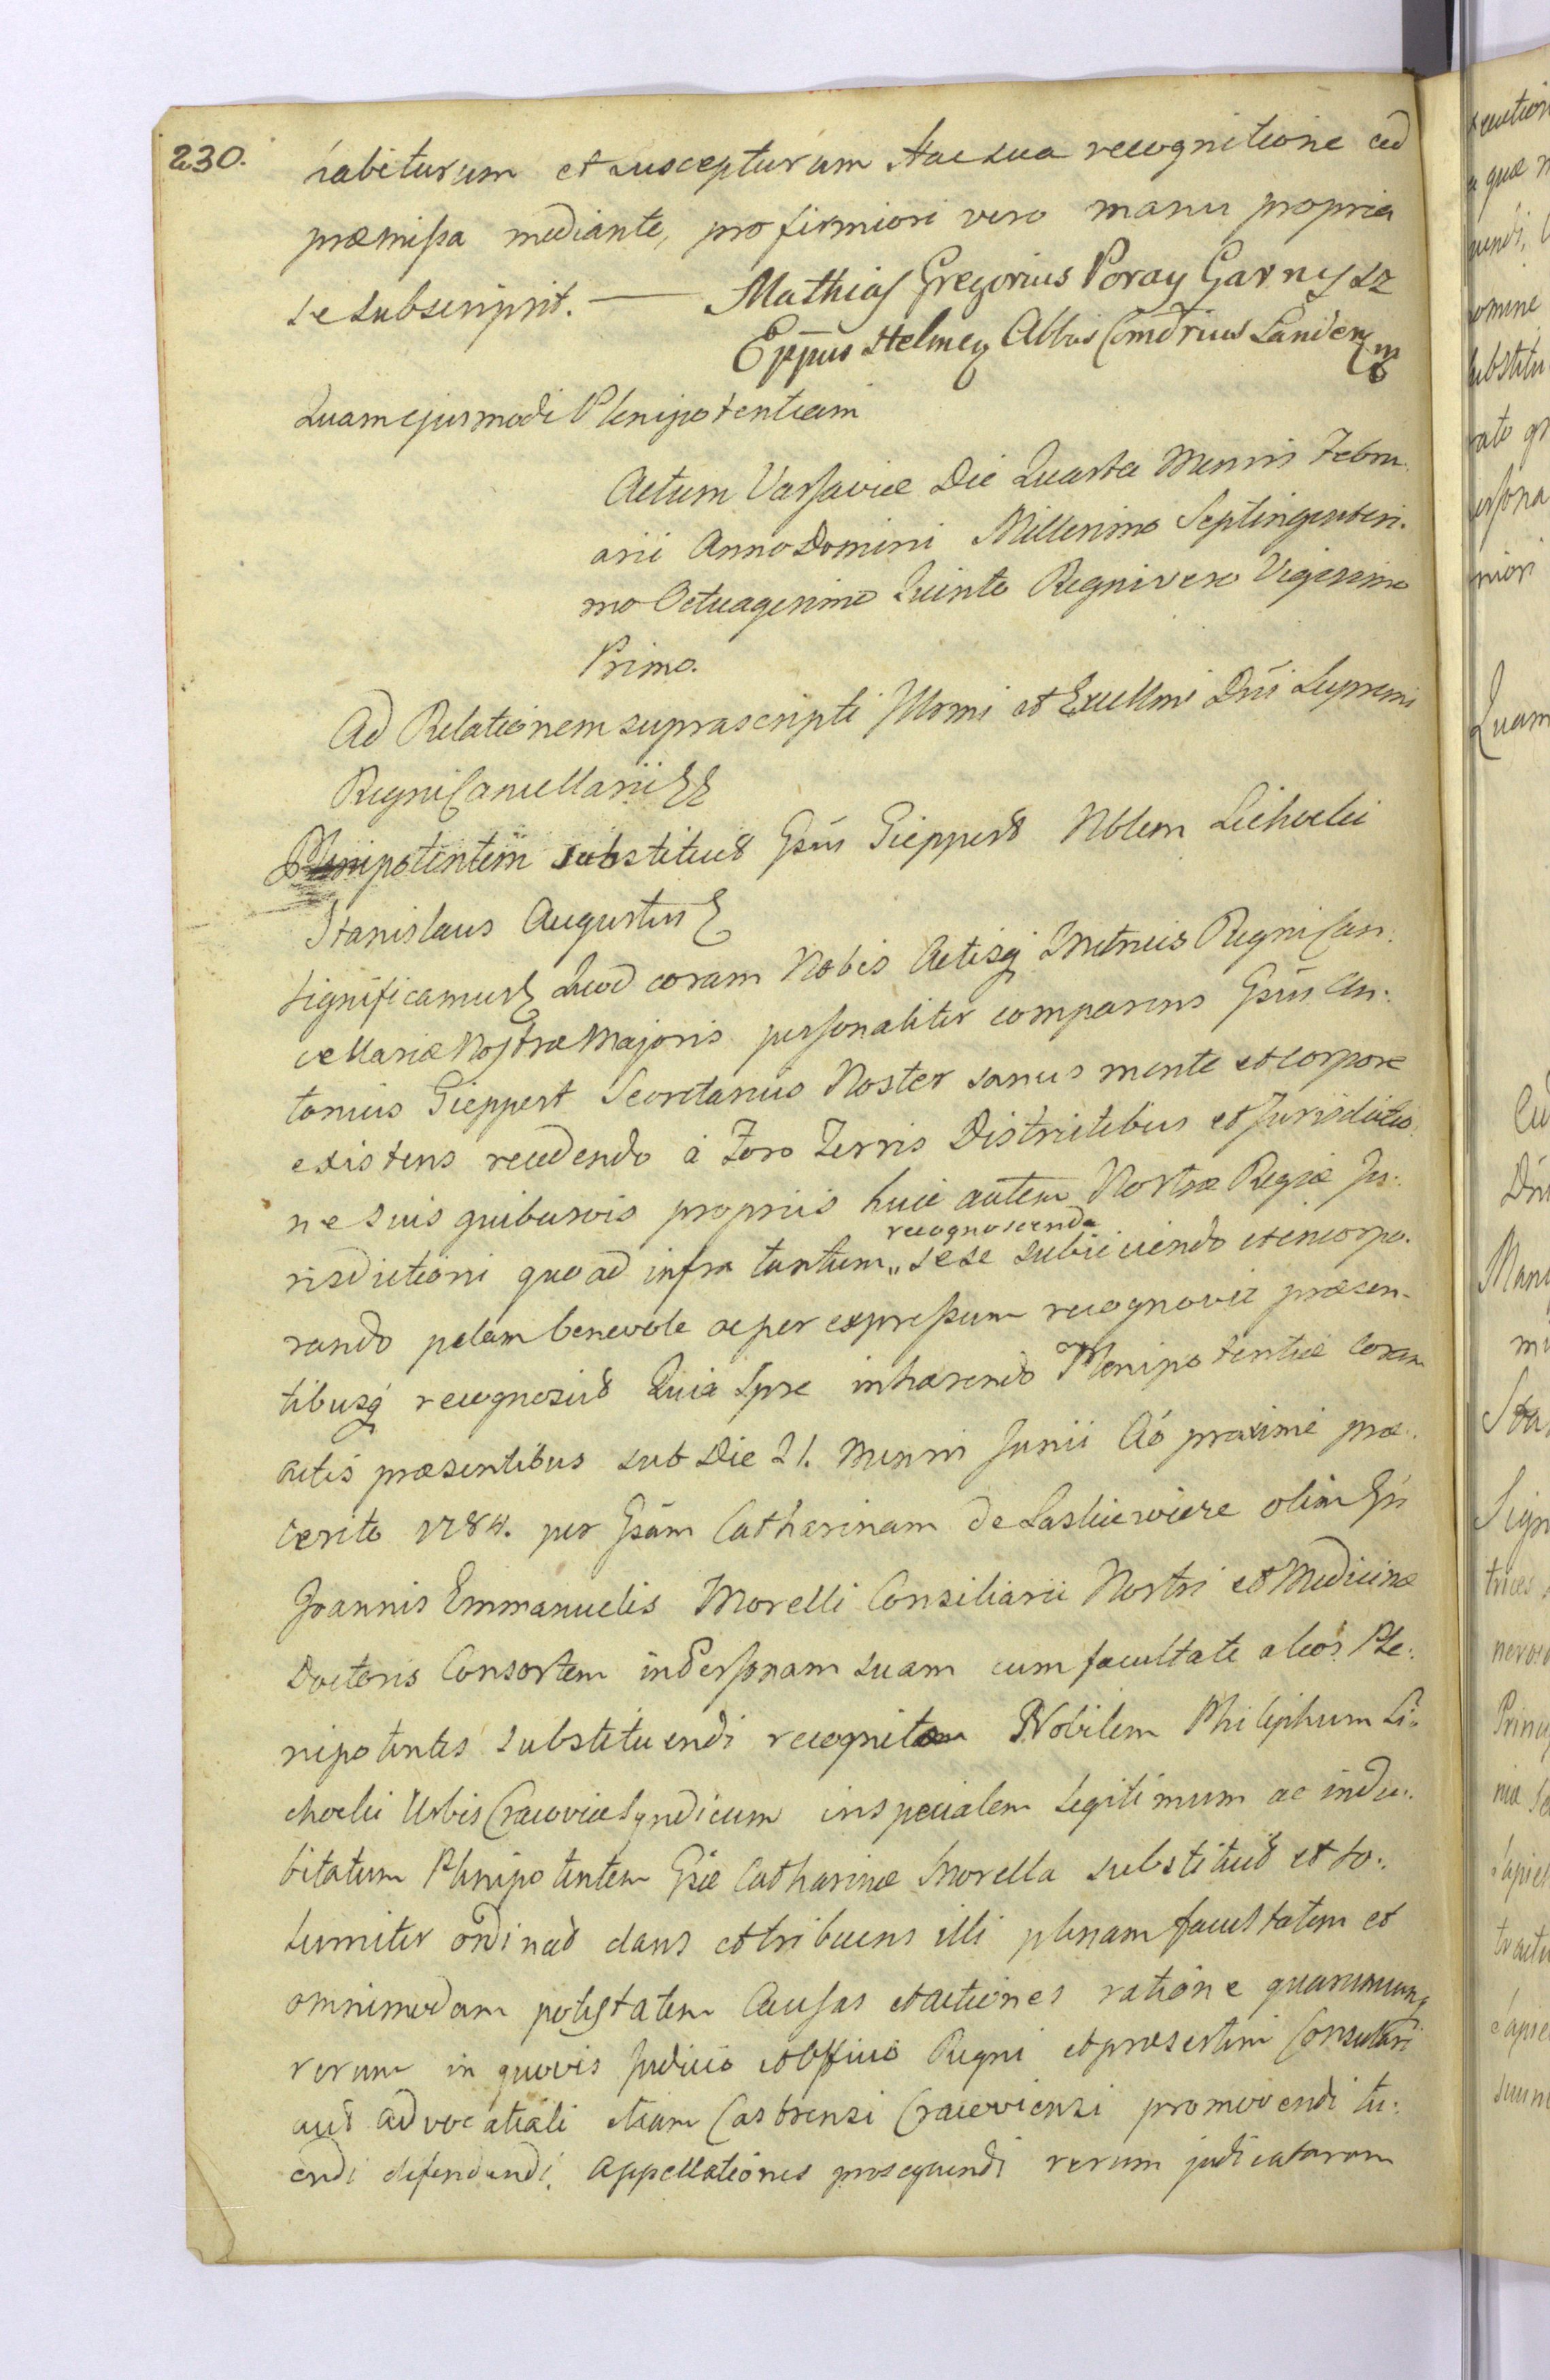 230.
habiturum et suscepturum hac sua recognitione ad
præmißa mediante, pro firmiori vero manu propria
se subscripsit. — Mathias Gregorius Poray Garnysz
Eppus Helmeƞ Abbas Comdrius Landenƞ mp
Quam ejusmodi Plenipotentiam
Actum Varsaviæ Die Quarta Mensis Febru.
arii Anno Domini Millesimo Septingentesi.
mo Octuagesimo Quinto Regni vero Vigesimo
Primo.
Ad Relationem suprascripti Illrmi et Excellmi Dni Supremi
Regni Cancellarii
Plenipotentem substituit Gsus Gieppert Nblem Lichocki
Stanislaus Augustus
Significamus Quod coram Nobis Actisq Metricis Regni Can:
cellariæ Nostræ Majoris personaliter comparens Gsus An:
tonius Gieppert Secretarius Noster sanus mente et corpore
existens recedendo a Foro Terris Districtibus et Jurisdictio:
ne suis quibusvis propriis huic autem Nostræ Regiæ Ju:
risdictioni quo ad infra tantum „ recognoscenda sese subiiciendo et incorpo:
rando palam benevole ac per expreßum recognovit præsen-
tibusq recognoscit Quia Ipse inhærendo Plenipotentiæ coram
actis præsentibus sub Die 21. Mensis Junii Ao proxime præ:
terito 1784. per Gsam Catharinam de Laskiewicze olim Gsi
Joannis Emmanuelis Morelli Consiliarii Nostri et Medicinæ
Doctoris Consortem in Personam suam cum facultate alios Ple:
nipotentes substituendi recognitæ Nobilem Philiphum Li:
chocki Urbis Cracoviæ Syndicum in specialem Legitimum ac indu:
bitatum Plenipotentem Gsæ Catharinæ Morella substituit et so:
lemniter ordinat dans et tribuens illi plenam facultatem et
omnimodam potestatem Causas et actiones ratione quarumcunq
rerum in quovis Judicio et Officio Regni et præsertim Consulari
aut advocatiali etiam Castrensi Cracoviensi promovendi tu:
endi defendendi, Appellationes prosequendi rerum judicatarum